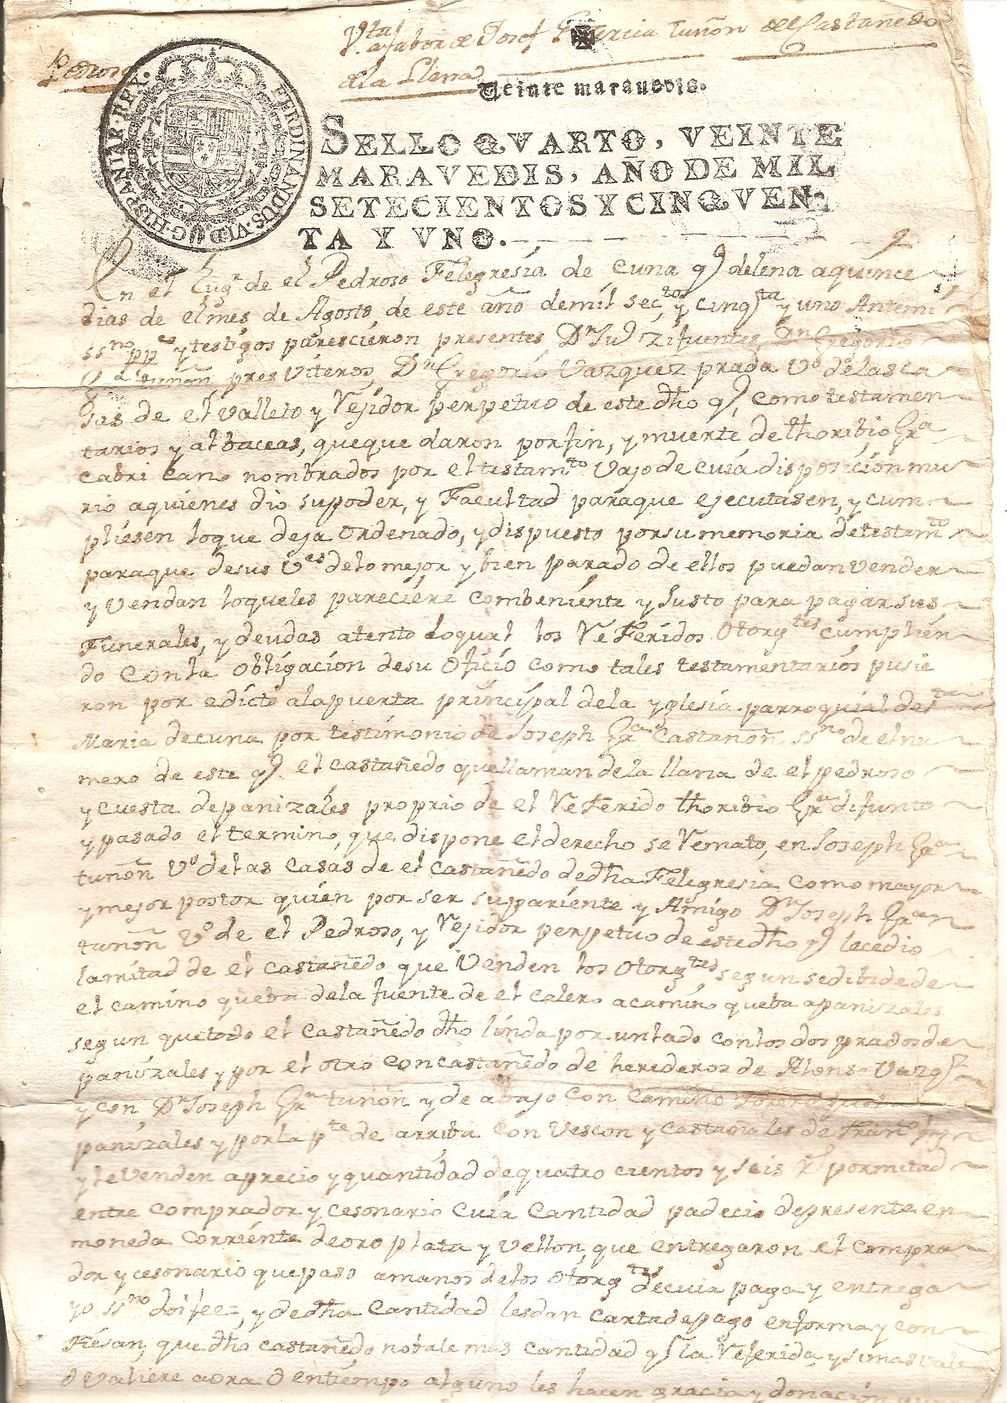 Vta afabor de Josef Garcia tuñon de el Castañedo
Pedroso
de la Llena
Veinte maravedis.
FERDINANDUS.VI.D.G.HISPANIAR.REX.
SELLO QVARTO, VEINTE
MARAVEDIS, AÑO DE MIL
SETECIENTOS Y CINQVEN-
TA Y VNO.
En el Lugr de el Pedroso Felegresía de Cuna qo delena aquince
dias de el mes de Agosto de este año demil sectos y cinqta y uno Antemi
ssno ppco y testigos parescieron presentes Dn Juo Zifuentes Dn Gregorio
tuñon presviteros, Dn Gregorio Vazquez prada Vo de las ca
sas de el valleto y Rejidor perpetuo de este dho qo, como testamen
tarios y albaceas, que quedaron por fin, y muerte de thoribio Gra
Cabricano nombrados por el testamto Vajo de cuia disposicion mu
rio aquienes dio su poder, y Facultad para que ejecutasen, y cum
pliesen lo que deja ordenado, y dispuesto por su memoria de testamto
para que de sus Ves de lo mejor y bien parado de ellos puedan vender
y Vendan loqueles pareciere combeniente y Justo para pagar sus
Funerales, y deudas atento loqual los Referidos Otorgtes cumplien
do Con la obligacion desu oficio como tales testamentarios pusie
ron por edicto alapuerta principal dela yglesia parroquial de Sta
Maria decuna por testimonio de Joseph Gra Castañon ssno de el nu
mero de este qo. el castañedo quellaman dela llana de el pedroso
y cuesta de panizales proprio de el Referido thoribio Gra difunto
y pasado el termino, que dispone el derecho se Remato, en Joseph Gra
tuñon Vo de las casas de el castañedo dedha Felegresia como mayor
y mejor postor quien por ser su pariente y Amigo Dn Joseph Gra
tuñon Vo de el Pedroso, y Rejidor perpetuo de este dho qo lecedio
la mitad de el castañedo que Venden los otorgtes, segun se dibide de
el camino que ba dela fuente de el calero acamino queba apanizales
segun que todo el castañedo dho linda por un lado con los dos prados de
panizales y por el otro con castañedo de herederos de Alonso Vazqz
y con Dn Joseph Gra tuñon y de abajo con camino
panizales y por la pte de arriba con Rescon y castañales de Frano
y le Venden a precio y quantidad de quatro cientos y seis rs por mitad
entre comprador y cesonario cuia Cantidad padecio de presente en
moneda corriente de oro plata y vellon, que entregaron el compra
dor y cesonario que paso a manos de los otorgtes de cuia paga y entrega
yo ssno doi fee, y de dha Cantidad les dan carta de pago en forma y con
fiesan, que dho castañedo no bale mas cantidad qe la Referida y si mas vale
o valiere aora o en tiempo alguno les hacen gracia y donacion